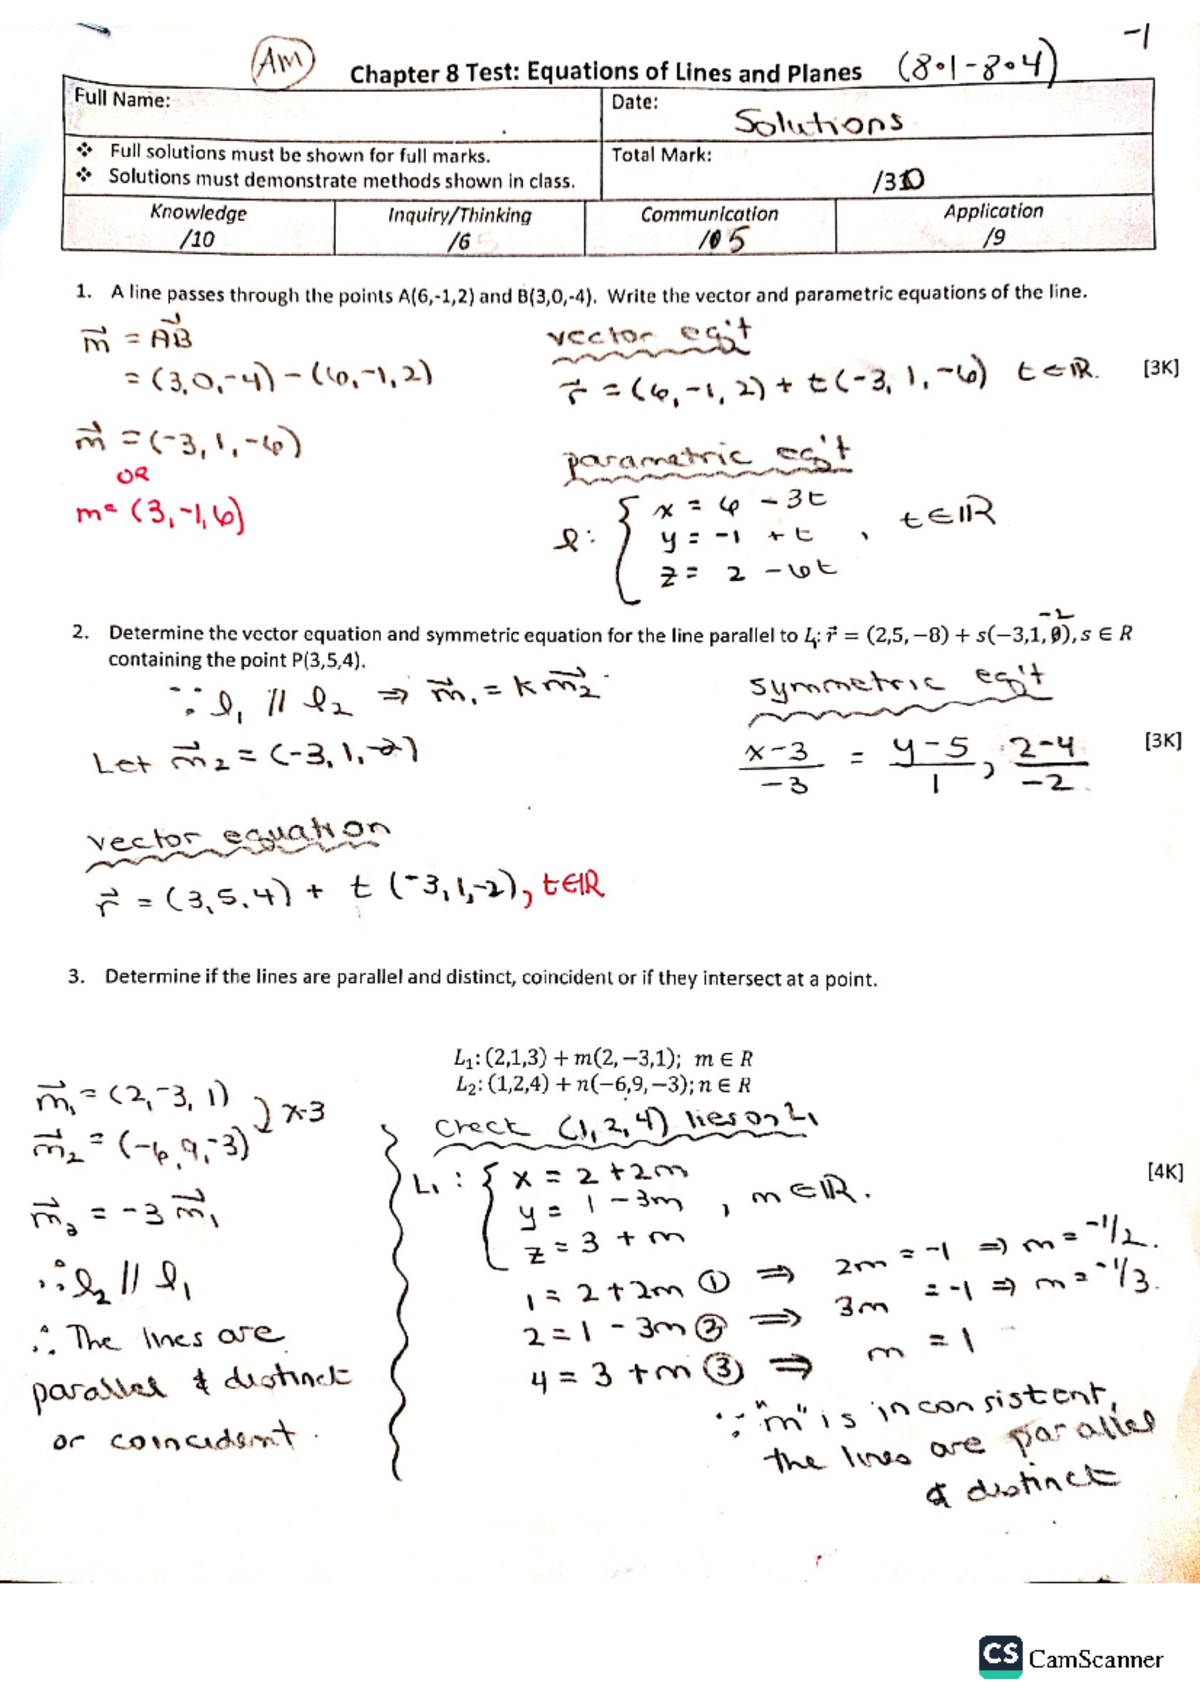 -1
AM
Chapter 8 Test: Equations of Lines and Planes (8.1-8.4)
Full Name:
Date:
Solutions
❖ Full solutions must be shown for full marks.
❖ Solutions must demonstrate methods shown in class.
Total Mark:
/30
Knowledge
/10
Inquiry/Thinking
/6
Communication
/5
Application
/9
1. A line passes through the points A(6,-1,2) and B(3,0,-4). Write the vector and parametric equations of the line.
m⃗ = AB⃗
= (3,0,-4) - (6,-1,2)
m⃗ = (-3,1,-6)
OR
m = (3,-1,6)
vector eq't
r⃗ = (6,-1,2) + t(-3,1,-6) t∈ℝ.
[3K]
parametric eq't
l: { x = 6 - 3t
y = -1 + t , t∈ℝ
z = 2 - 6t
2. Determine the vector equation and symmetric equation for the line parallel to l₁: r⃗ = (2,5,−8) + s(−3,1,-2), s ∈ R
containing the point P(3,5,4).
∵ l₁ // l₂ ⇒ m⃗₁ = k m⃗₂
Let m⃗₂ = (-3,1,-2)
vector equation
r⃗ = (3,5,4) + t(-3,1,-2), t∈ℝ
symmetric eq't
x-3/-3 = y-5/1, z-4/-2
[3K]
3. Determine if the lines are parallel and distinct, coincident or if they intersect at a point.
L₁: (2,1,3) + m(2,−3,1); m ∈ R
L₂: (1,2,4) + n(−6,9,−3); n ∈ R
m⃗₁ = (2,-3,1)
m⃗₂ = (-6,9,-3)
x-3
m⃗₂ = -3m⃗₁
∴ l₂ // l₁
∴ The lines are
parallel & distinct
or coincident.
Check (1,2,4) lies on L₁
L₁: { x = 2 + 2m
y = 1 - 3m , m∈ℝ.
z = 3 + m
[4K]
1 = 2 + 2m ① ⇒ 2m = -1 ⇒ m = -1/2.
2 = 1 - 3m ② ⇒ 3m = -1 ⇒ m = -1/3.
4 = 3 + m ③ ⇒ m = 1
∵ "m" is inconsistent,
the lines are parallel
& distinct
CS CamScanner